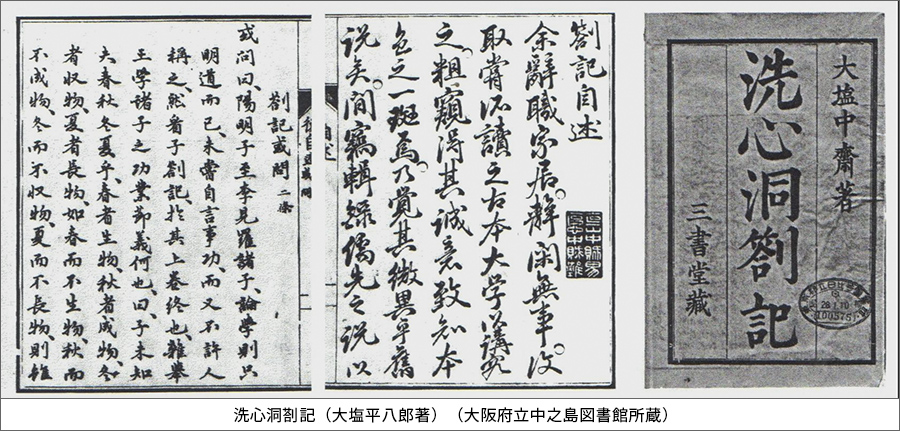 大塩中齋著
洗心洞劄記
三書堂藏
28.1.10
劄記自述
余辭職家居。靜閑無事。改
取嘗所讀之古本大学以講究
之。粗窺得其誠意致知本
色之一斑焉。乃覺其微異乎舊
説矣。間竊輯録儒先之説以
劄記或問 二條
或問曰、陽明子至李見羅諸子、論學則只
明道而已、未嘗自言事功、而又不許人
稱之、然看子劄記、於其上卷終也、雜舉
王學諸子之功業節義何也、曰、子未知
夫春秋冬夏乎、春者生物、秋者成物、冬
者収物、夏者長物、如春而不生物、秋而
不成物、冬而不収物、夏而不長物、則雖
洗心洞劄記（大塩平八郎著）（大阪府立中之島図書館所蔵）